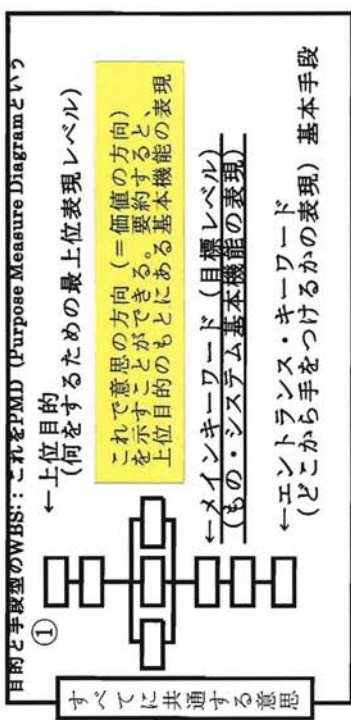 目的と手段型のWBS::これをPMD (Purpose Measure Diagramという
①
←上位目的
(何をするための最上位表現レベル)
これで意思の方向(=価値の方向)
を示すことができる。要約すると、
上位目的のもとにある基本機能の表現
←メインキーワード(目標レベル)
(もの・システム基本機能の表現)
←エントランス・キーワード
(どこから手をつけるかの表現) 基本手段
すべてに共通する意思